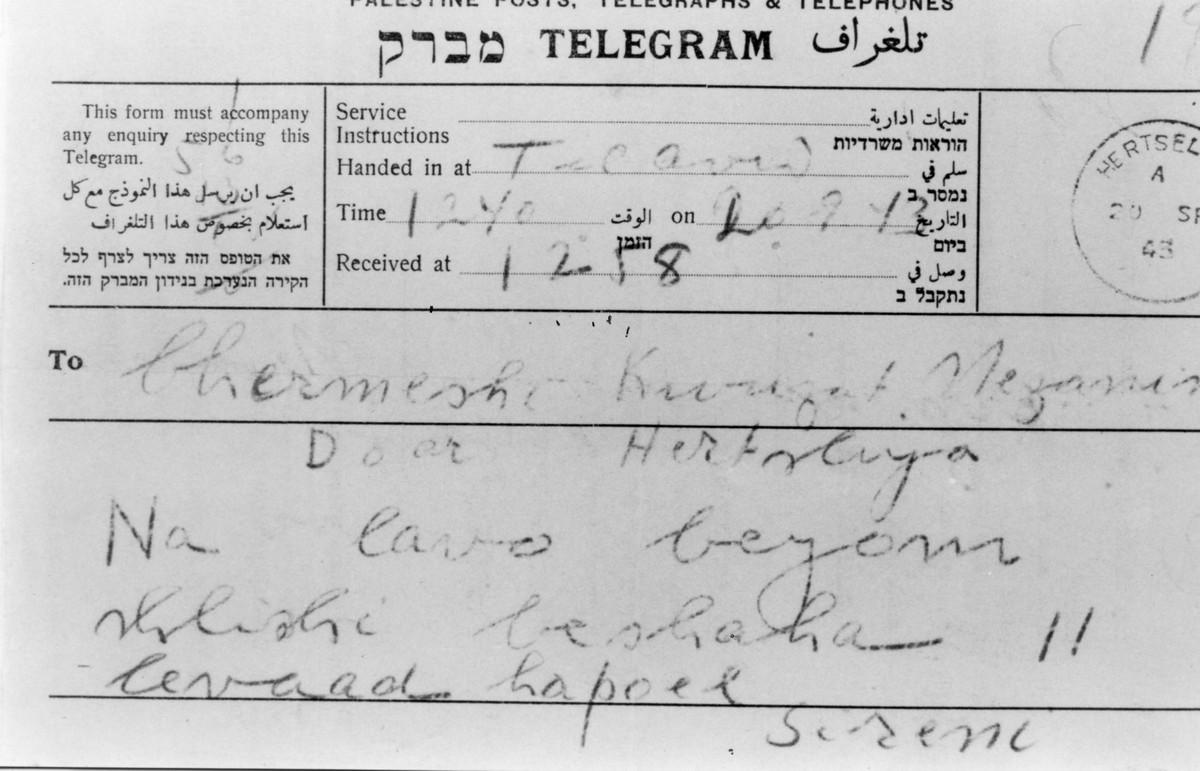 PALESTINE POSTS, TELEGRAPHS & TELEPHONES
מברק TELEGRAM تلغراف
This form must accompany
any enquiry respecting this
Telegram.
56
يجب ان يرسل هذا النموذج مع كل
استعلام بخصوص هذا التلغراف
את הטופס הזה צריך לצרף לכל
חקירה הנערכת בנידון המברק הזה.
Service تعليمات ادارية
Instructions הוראות משרדיות
Handed in at T-L Aviv سلم في
נמסר ב
Time 1240 الوقت on 20.9.43 التاريخ
הזמן ביום
Received at 1258 وصل في
נתקבל ב
HERTSEL
A
20 SE
43
To Chermesh Kvuzat Megamin
Doar Hertsliya
Na lavo beyom
shlishi beshaha 11
levaad hapoel
Sireni